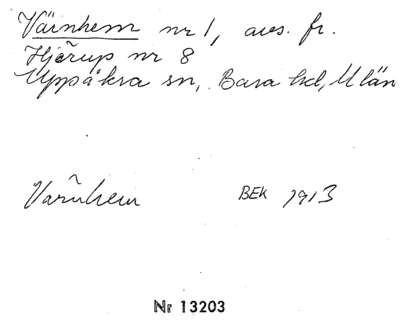 Värnhem nr 1, avs. fr.
Hjärup nr 8
Uppåkra sn, Bara hd, M län
Värnhem BEK 1913
Nr 13203